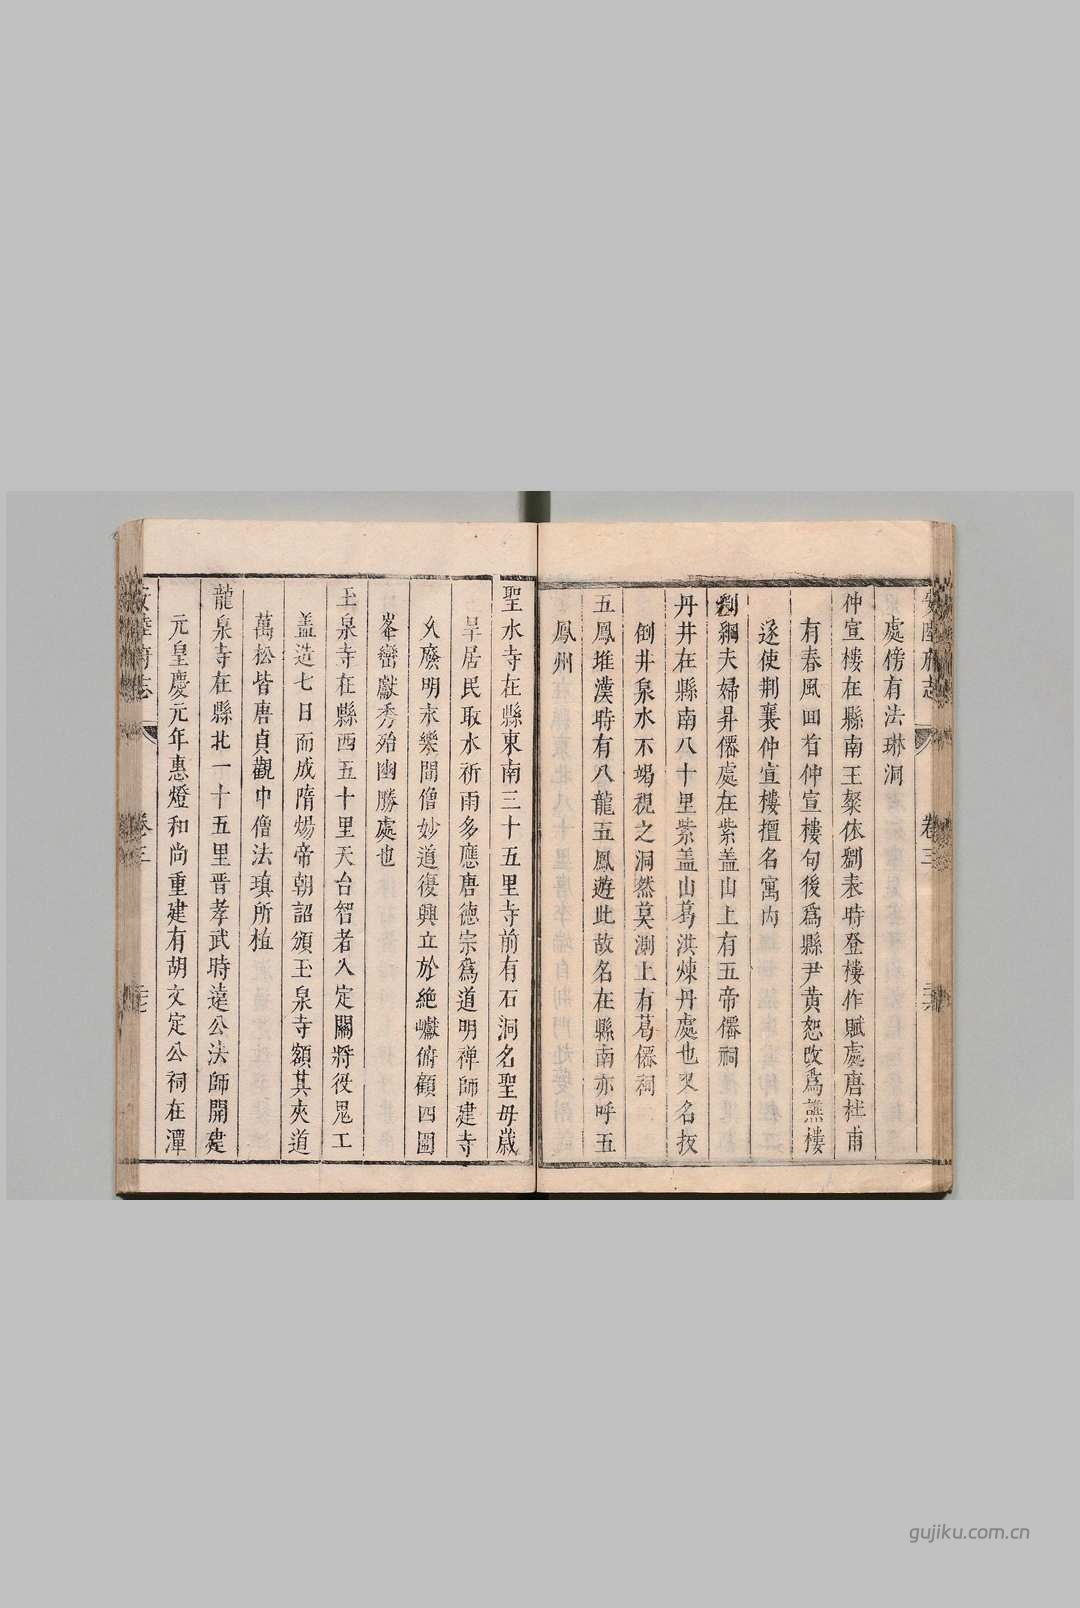 安陸府志 卷三 二十六
處傍有法琳洞
仲宣樓在縣南王粲依劉表時登樓作賦處唐杜甫
有春風回首仲宣樓句後爲縣尹黃恕改爲譙樓
遂使荆襄仲宣樓擅名寓内
劉綱夫婦昇僊處在紫盖山上有五帝僊祠
丹井在縣南八十里紫盖山葛洪煉丹處也又名抜
倒井泉水不竭視之洞然莫測上有葛僊祠
五鳳堆漢時有八龍五鳳遊此故名在縣南亦呼五
鳳州
聖水寺在縣東南三十五里寺前有石洞名聖毋歲
旱居民取水祈雨多應唐德宗爲道明禅師建寺
乆廢明末樂間僧妙道復興立於絶巘俯顧四圖
峯巒獻秀殆幽勝處也
玉泉寺在縣西五十里天台智者入定關將役鬼工
盖造七日而成隋煬帝朝詔頒玉泉寺額其夾道
萬松皆唐貞觀中僧法瑱所植
龍泉寺在縣北一十五里晋孝武時逺公法師開建
元皇慶元年惠燈和尚重建有胡文定公祠在潭
安陸府志 卷三 二十七
gujiku.com.cn